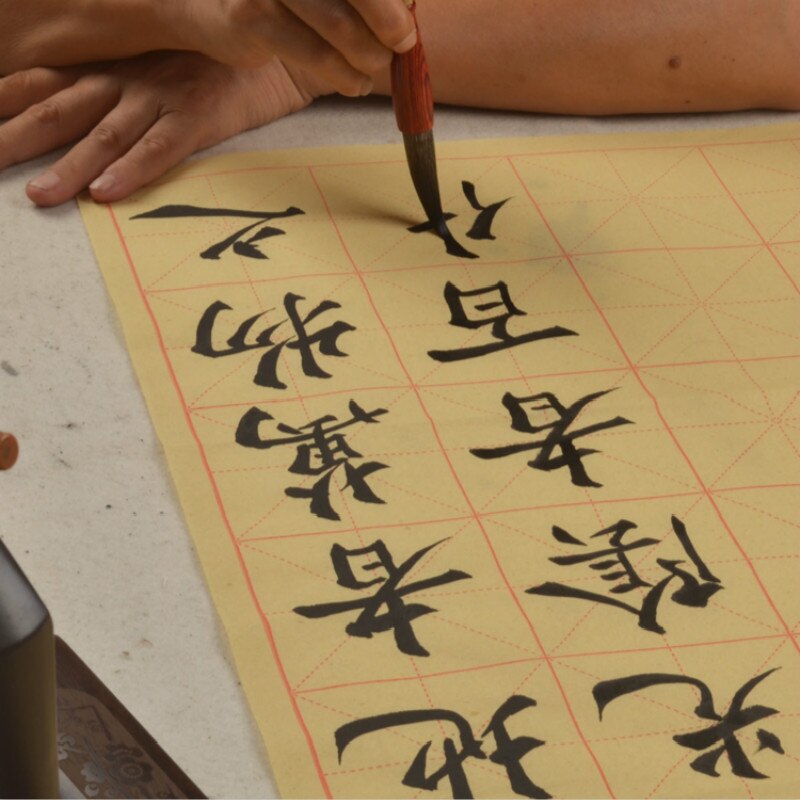 地者萬物之
光陰者百